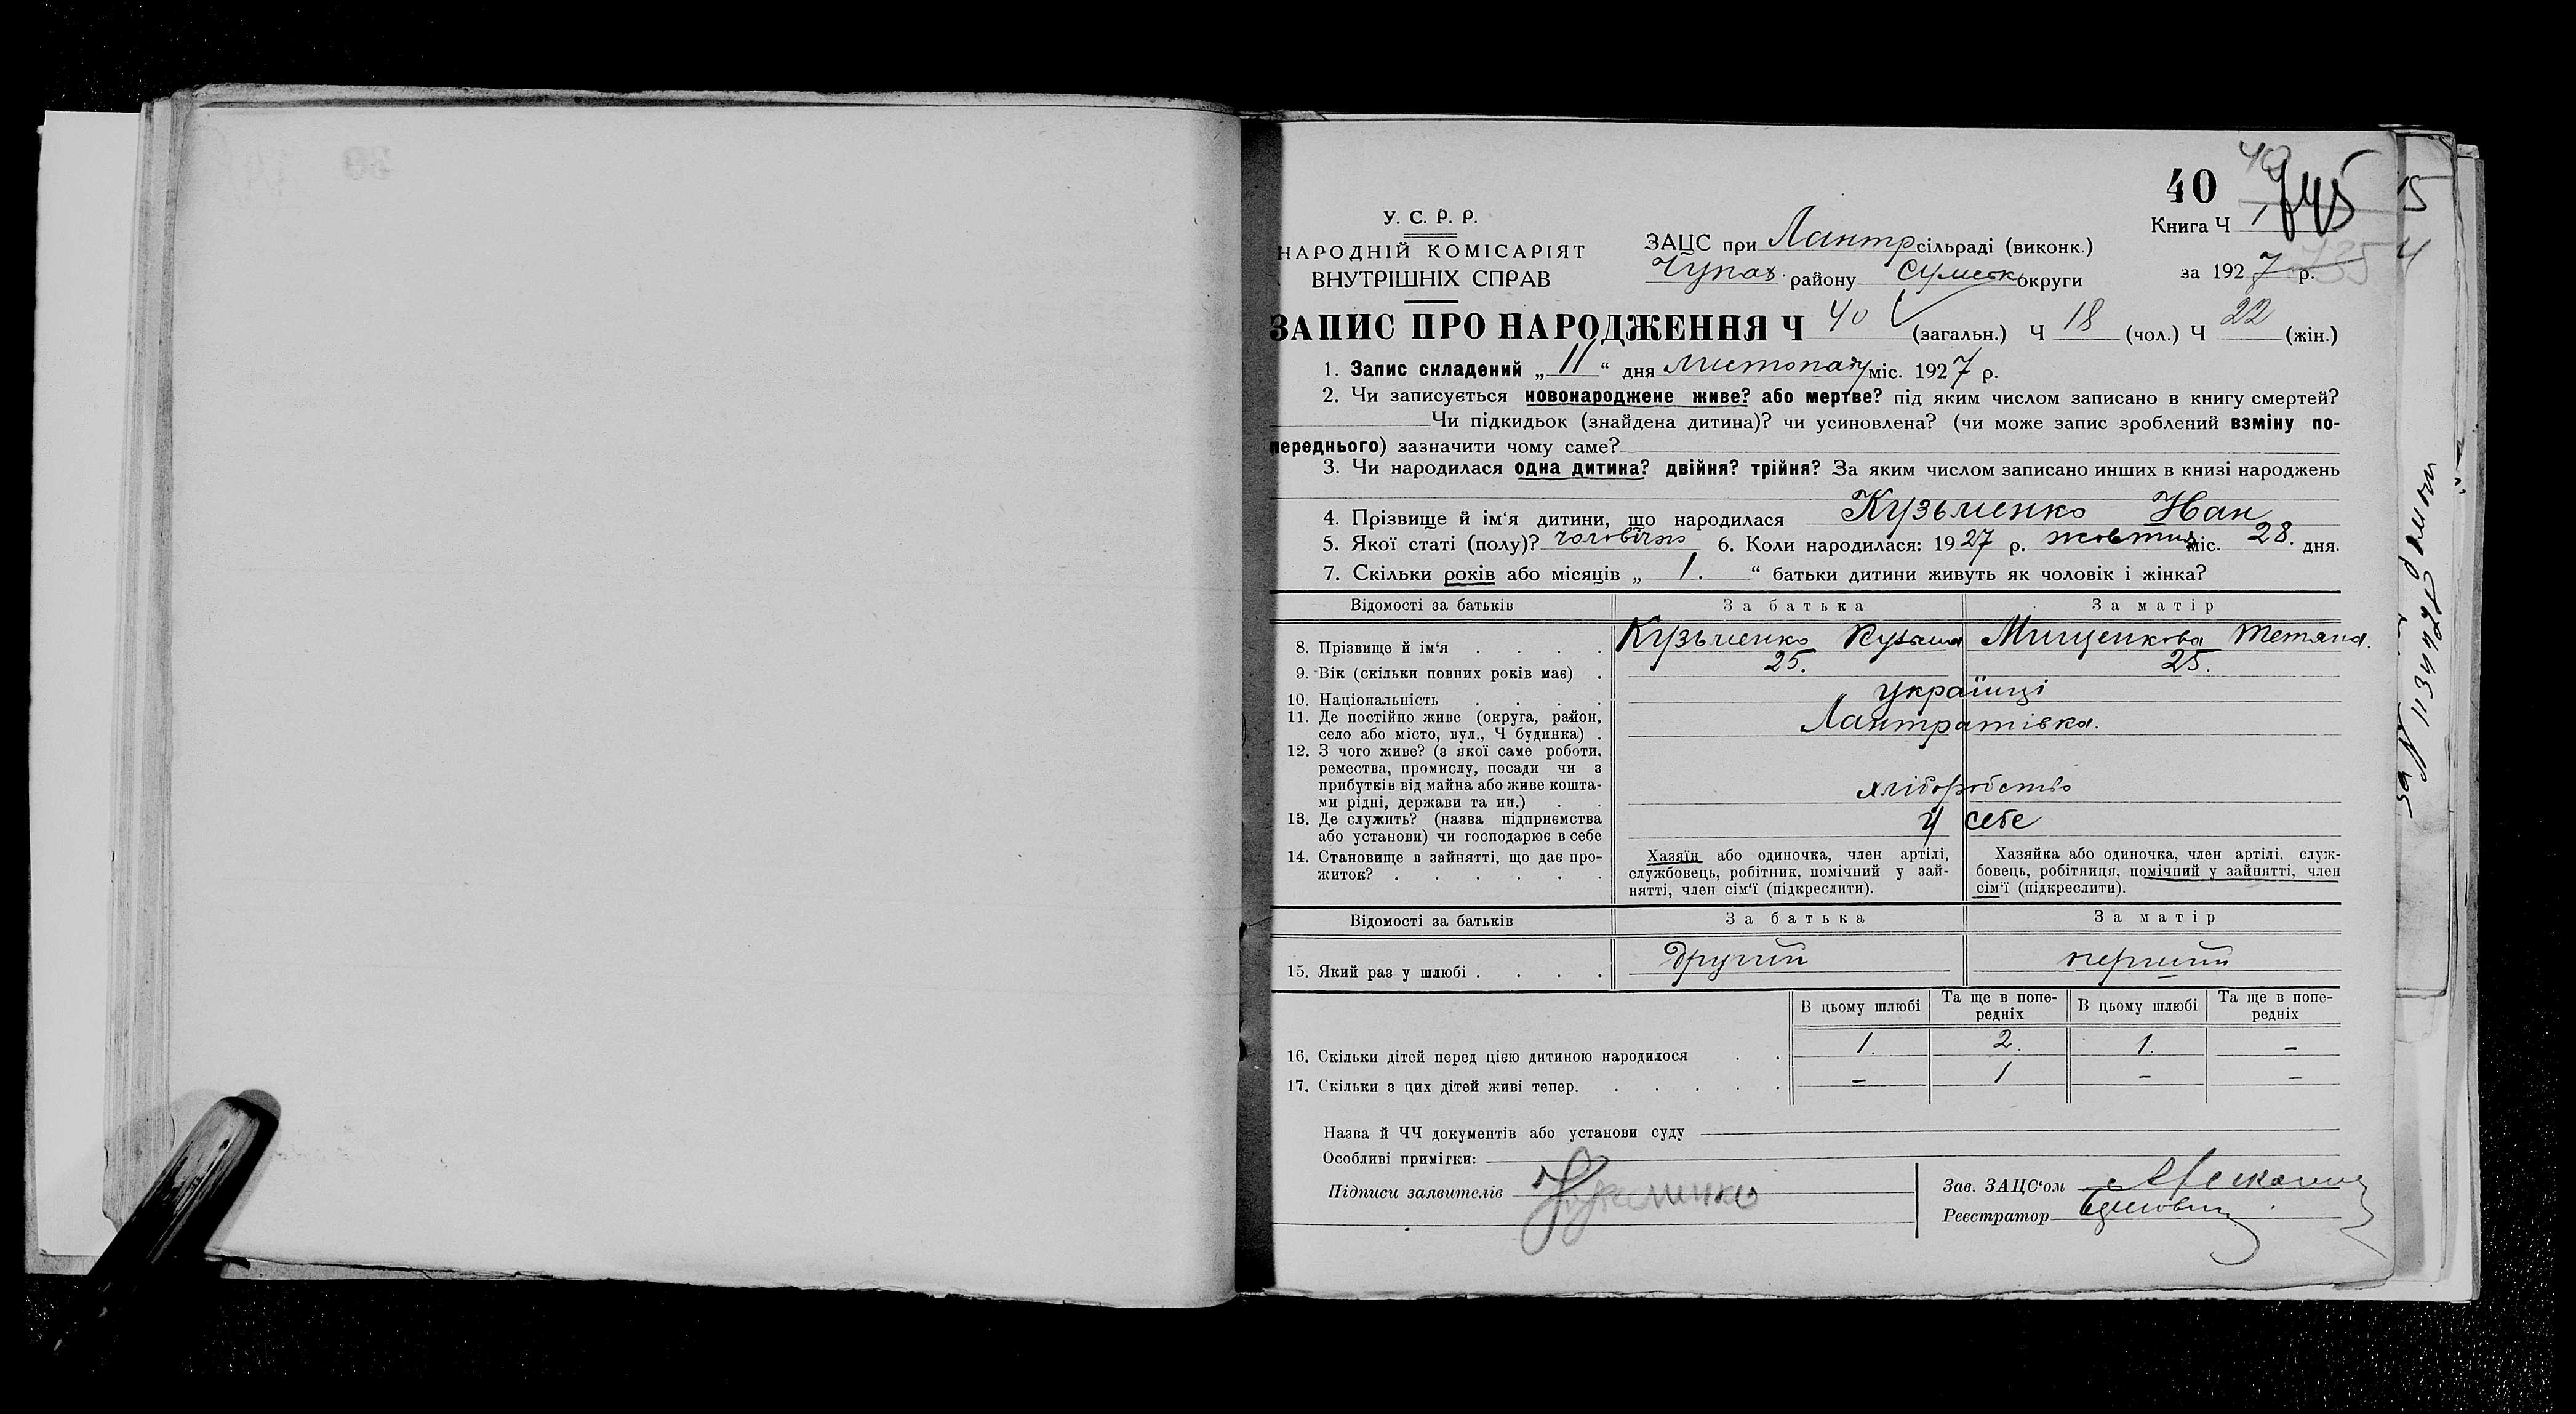 40
745
У. С. Р. Р.
НАРОДНІЙ КОМІСАРІЯТ
ВНУТРІШНІХ СПРАВ
ЗАЦС при Лантр сільраді (виконк.)
Чупах. району Сумськ округи
Книга Ч 1
за 1927 р.
735
ЗАПИС ПРО НАРОДЖЕННЯ Ч 40 (загальн.) Ч 18 (чол.) Ч 22 (жін.)
1. Запис складений „ 11 “ дня листопаду міс. 1927 р.
2. Чи записується новонароджене живе? або мертве? під яким числом записано в книгу смертей?
Чи підкидьок (знайдена дитина)? чи усиновлена? (чи може запис зроблений взміну по-
переднього) зазначити чому саме?
3. Чи народилася одна дитина? двійня? трійня? За яким числом записано инших в книзі народжень
4. Прізвище й ім‘я дитини, що народилася Кузьменко Иван
5. Якої статі (полу)? 6. Коли народилася: 1927 р. жовтня міс. 28. дня.
7. Скільки років або місяців „ 1. “ батьки дитини живуть як чоловік і жінка?
Відомості за батьків За батька За матір
8. Прізвище й ім‘я Кузьменко Кузьма Мищенкова Тетяна.
9. Вік (скільки повних років має) 25. 25.
10. Національність українці
11. Де постійно живе (округа, район,
село або місто, вул., Ч будинка) Лантратівка.
12. З чого живе? (з якої саме роботи,
ремества, промислу, посади чи з
прибутків від майна або живе кошта-
ми рідні, держави та ин.) хліборобство
13. Де служить? (назва підприємства
або установи) чи господарює в себе у себе
14. Становище в зайнятті, що дає про-
житок?
Хазяїн або одиночка, член артілі,
службовець, робітник, помічний у зай-
нятті, член сім‘ї (підкреслити).
Хазяйка або одиночка, член артілі, служ-
бовець, робітниця, помічний у зайнятті, член
сім‘ї (підкреслити).
Відомості за батьків За батька За матір
15. Який раз у шлюбі другий первий
В цьому шлюбі Та ще в попе-
редніх В цьому шлюбі Та ще в попе-
редніх
16. Скільки дітей перед цією дитиною народилося 1. 2. 1. –
17. Скільки з цих дітей живі тепер. – 1 – –
Назва й ЧЧ документів або установи суду
Особливі примітки:
Підписи заявителів
Зав. ЗАЦС‘ом
Реєстратор